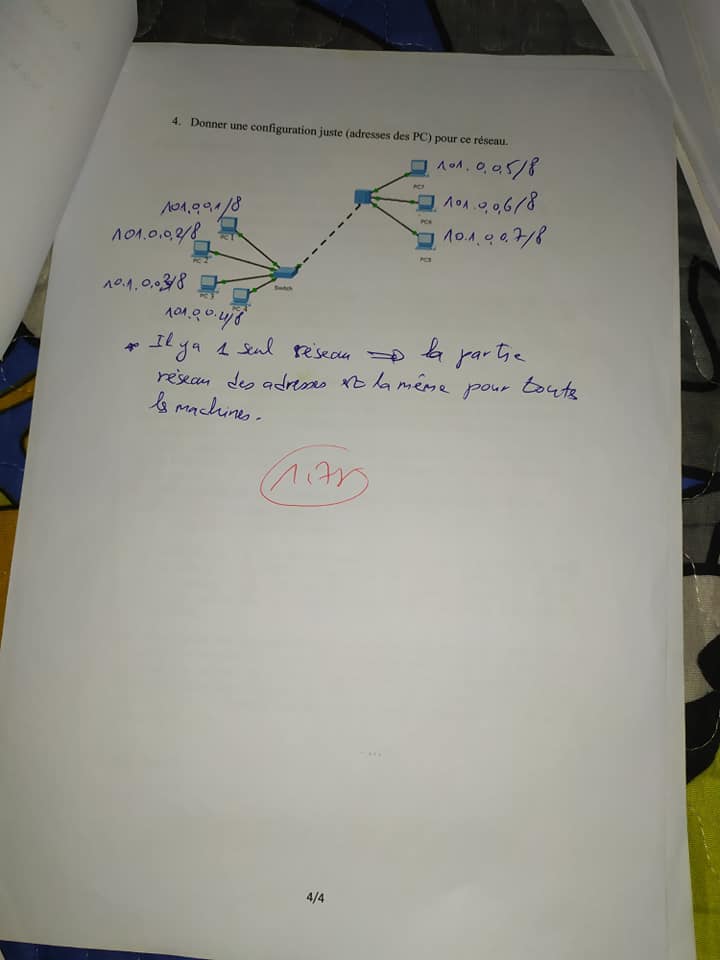 4. Donner une configuration juste (adresses des PC) pour ce réseau.
101.0.0.5/8
PC7
101.0.0.1/8
101.0.0.6/8
PC 1
PC6
101.0.0.2/8
101.0.0.7/8
PC 2
PC5
101.0.0.3/8
Switch
PC 3
PC 4
101.0.0.4/8
* Il y a 1 seul réseau => la partie
réseau des adresses est la même pour toutes
les machines.
1,75
4/4